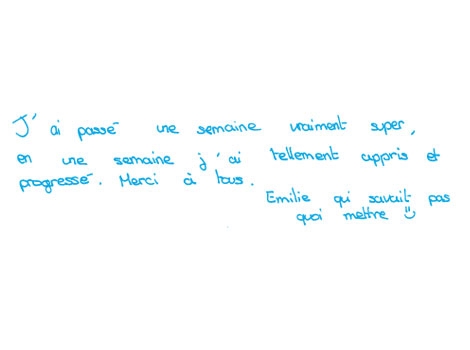 J'ai passé une semaine vraiment super,
en une semaine j'ai tellement appris et
progressé. Merci à tous.
Emilie qui savait pas
quoi mettre ☺